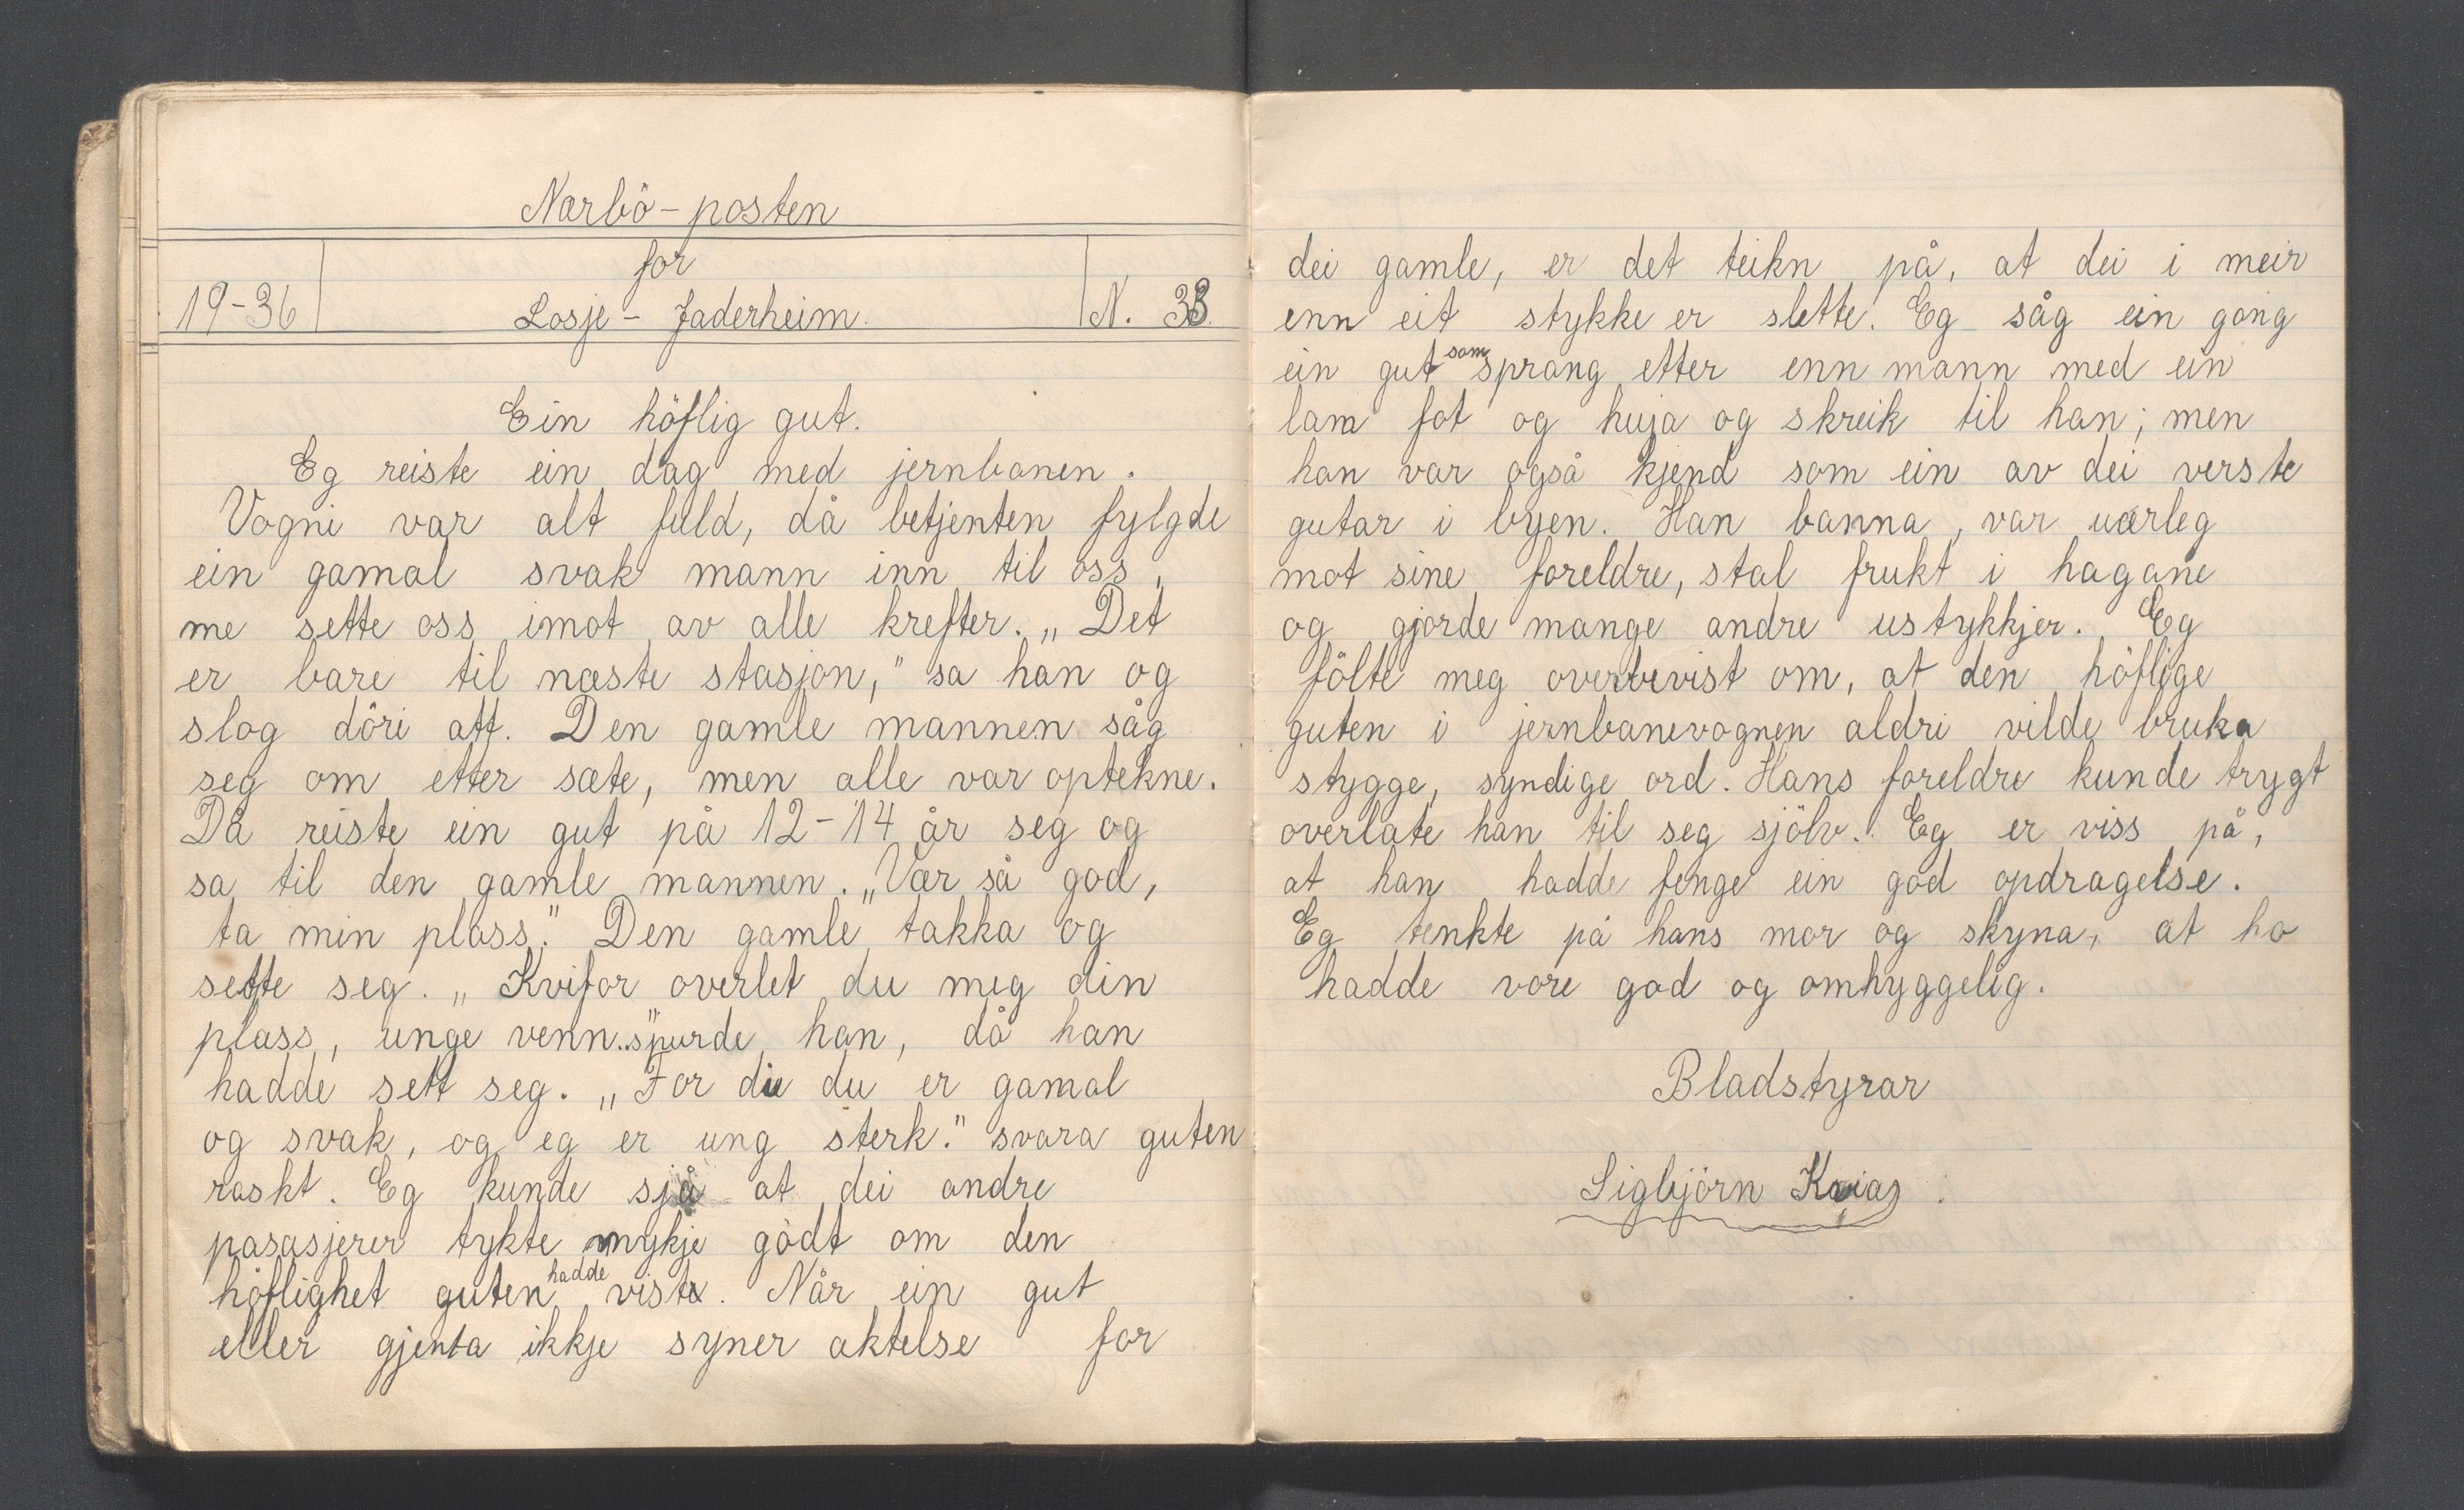 Nærbö - posten
for
19-36 Losje - Jaderheim. N. 33.
Ein höflig gut.
Eg reiste ein dag med jernbanen.
Vogni var alt fuld, då betjenten fylgde
ein gamal svak mann inn til oss,
me sette oss imot av alle krefter. „Det
er bare til næste stasjon," sa han og
slog döri att. Den gamle mannen såg
seg om etter sæte, men alle var optekne.
Då reiste ein gut på 12-14 år seg og
sa til den gamle mannen. „Vær så god,
ta min plass." Den gamle takka og
sette seg. „Kvifor overlet du meg din
plass, unge venn." spurde han, då han
hadde sett seg. „For di du er gamal
og svak, og eg er ung sterk." svara guten
raskt. Eg kunde sjå at dei andre
pasasjerer tykte mykje godt om den
höflighet guten hadde vist. Når ein gut
eller gjenta ikkje syner aktelse for
dei gamle, er det teikn på, at dei i meir
enn eit stykke er slette. Eg såg ein gong
ein gut som sprang etter enn mann med ein
lam fot og huja og skreik til han; men
han var også kjend som ein av dei verste
gutar i byen. Han banna, var uærleg
mot sine foreldre, stal frukt i hagane
og gjorde mange andre ustykkjer. Eg
fölte meg overbevist om, at den höflige
guten i jernbanevognen aldri vilde bruka
stygge, syndige ord. Hans foreldre kunde trygt
overlate han til seg sjölv. Eg er viss på,
at han hadde fenge ein god opdragelse.
Eg tenkte på hans mor og skyna, at ho
hadde vore god og omhyggelig.
Bladstyrar
Sigbjörn Kvia